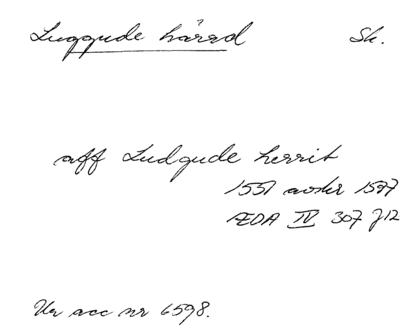 Luggude härad Sk.
aff Ludgude herrit
1551 avskr 1597
ÆDA IV 307 J12
Ur acc nr 6598.